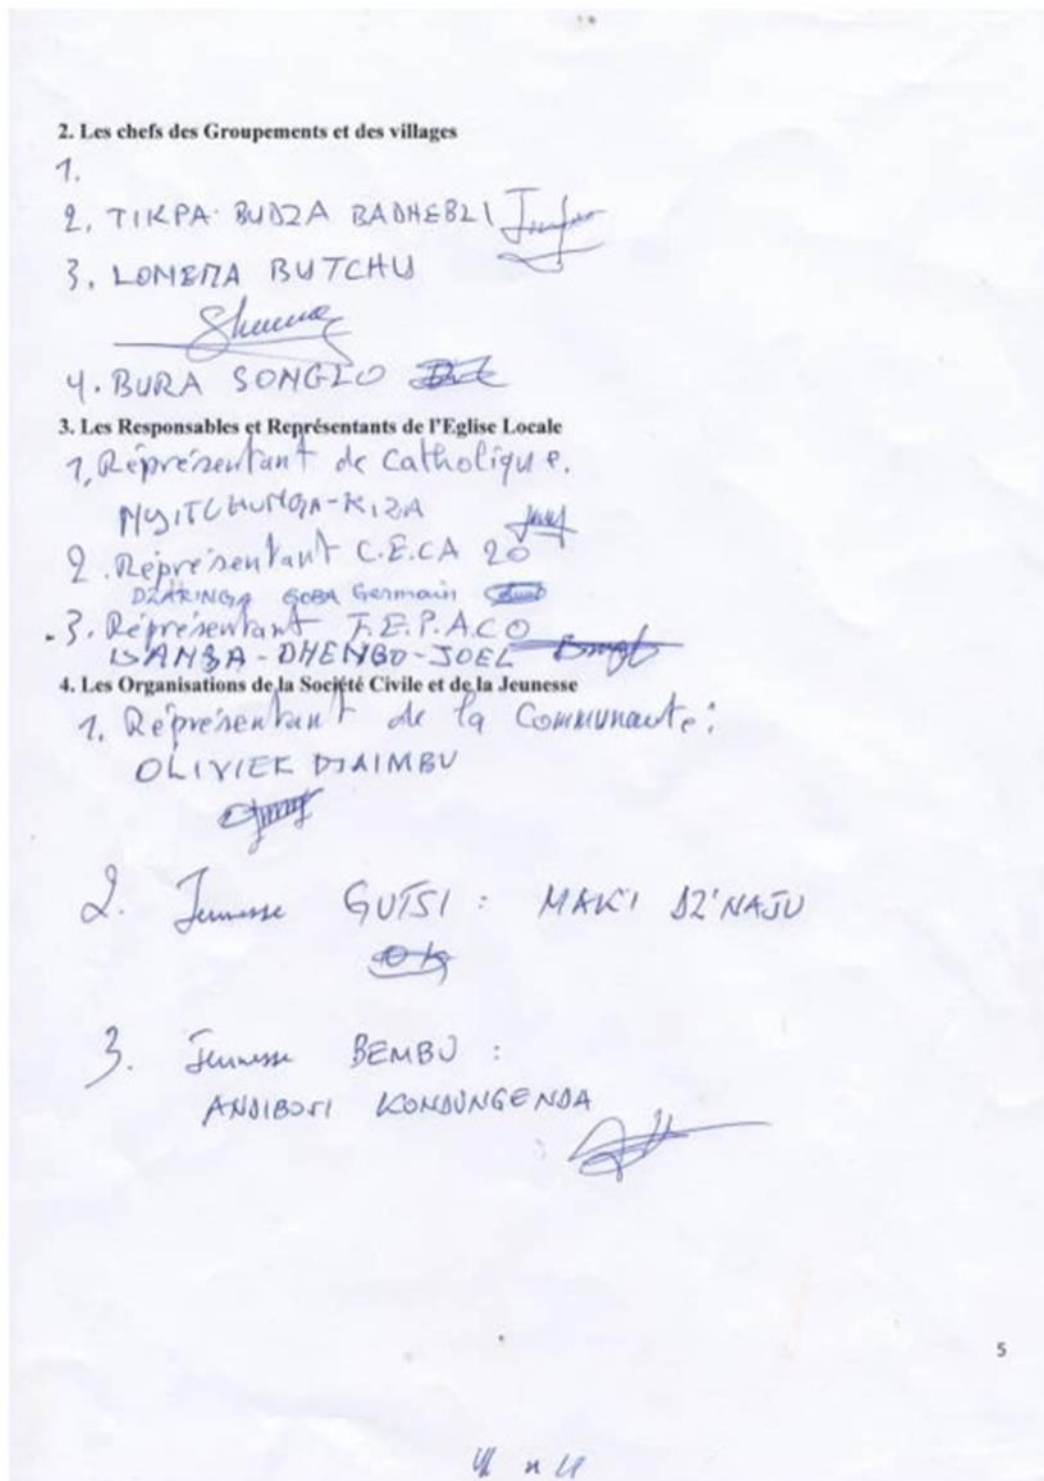 2. Les chefs des Groupements et des villages
1.
2. TIKPA BUDZA BADHEBLI
3. LONEMA BUTCHU
4. BURA SONGIO
3. Les Responsables et Représentants de l'Eglise Locale
1, Réprésentant de Catholique.
NYITCHUNGA-KIZA
2. Répresentant C.E.CA 20
DZARINGA GOBA Germain
3. Répresentant F.E.P.A.CO
ISAMBA-DHENGO-JOEL
4. Les Organisations de la Société Civile et de la Jeunesse
1. Répresentant de la Communauté:
OLIVIER DJAIMBU
2. Jeunesse GUTSI : MAKI DZ'NAJU
3. Jeunesse BEMBU :
ANDIBOSI KONDUNGENDA
5